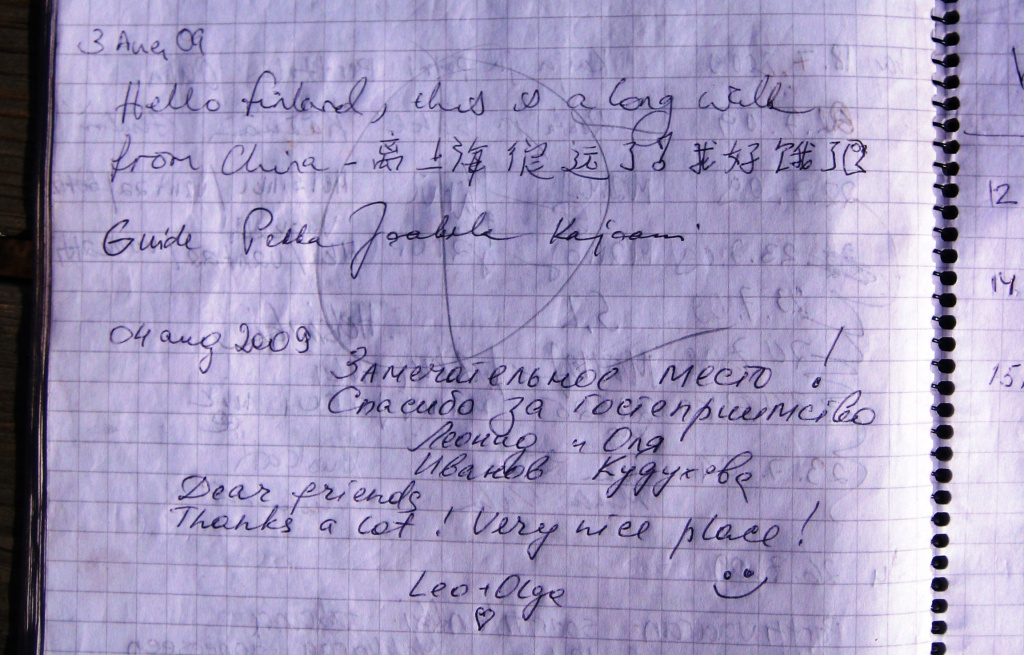 3 Aug 09
Hello finland, this is a long walk
from China - 离上海很远了 我好饿了
Guide Pekka Kajaani
04 aug 2009
Замечательное место !
Спасибо за гостеприимство
Леонид и Оля
Иванов Кудухова
Dear friends
Thanks a lot ! Very nice place !
Leo + Olga
12
14
15